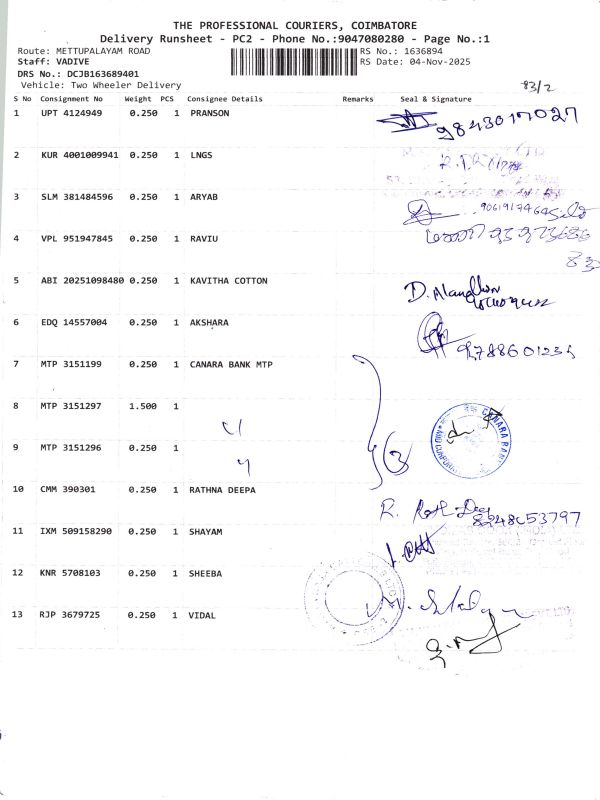 THE PROFESSIONAL COURIERS, COIMBATORE
Delivery Runsheet - PC2 - Phone No.:9047080280 - Page No.:1
Route: METTUPALAYAM ROAD RS No.: 1636894
Staff: VADIVE RS Date: 04-Nov-2025
DRS No.: DCJB163689401
Vehicle: Two Wheeler Delivery 83/2
S No Consignment No Weight PCS Consignee Details Remarks Seal & Signature
1 UPT 4124949 0.250 1 PRANSON 9843017027
2 KUR 4001009941 0.250 1 LNGS
3 SLM 381484596 0.250 1 ARYAB
4 VPL 951947845 0.250 1 RAVIU
5 ABI 20251098480 0.250 1 KAVITHA COTTON D.
6 EDQ 14557004 0.250 1 AKSHARA
7 MTP 3151199 0.250 1 CANARA BANK MTP
8 MTP 3151297 1.500 1 CANARA BANK
9 MTP 3151296 0.250 1 3
10 CMM 390301 0.250 1 RATHNA DEEPA R.
11 IXM 509158290 0.250 1 SHAYAM
12 KNR 5708103 0.250 1 SHEEBA
13 RJP 3679725 0.250 1 VIDAL